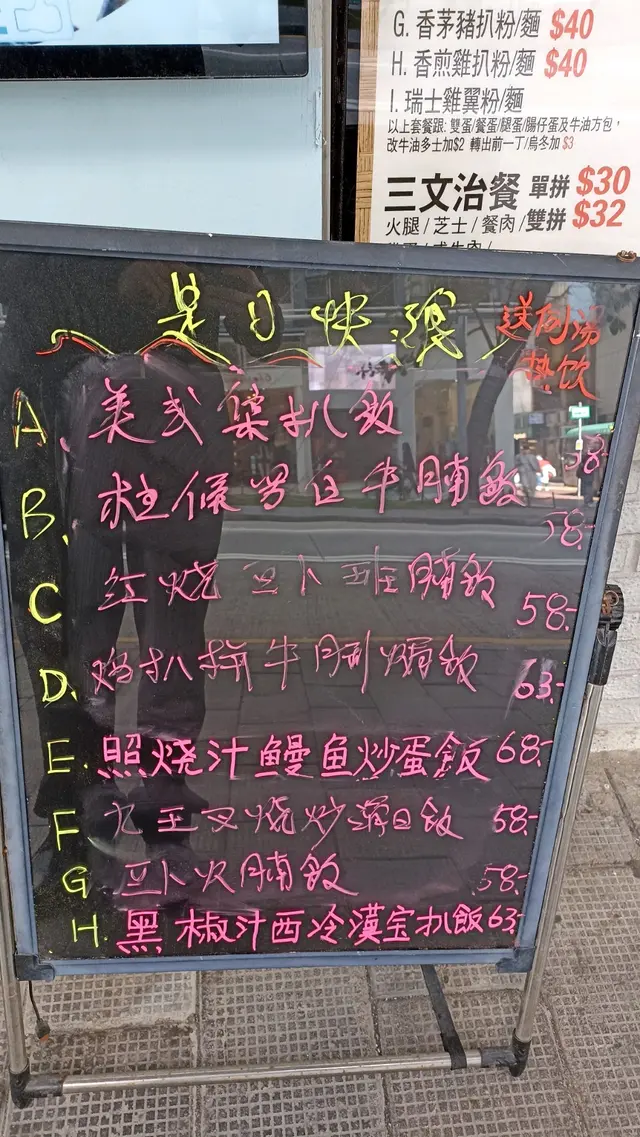 G. 香茅豬扒粉/麵 $40
H. 香煎雞扒粉/麵 $40
I. 瑞士雞翼粉/麵
以上套餐跟: 雙蛋/餐蛋/腿蛋/腸仔蛋及牛油方包,
改牛油多士加$2 轉出前一丁/烏冬加 $3
三文治餐 單拼 $30
火腿 / 芝士 / 餐肉 / 雙拼 $32
是日快餐 送例湯
热饮
A. 美式 扒飯 58-
B. 柱侯 牛腩飯 58-
C 红烧 腩飯 58-
D. 鸡扒拼牛 焗飯 63-
E. 照烧汁鳗鱼炒蛋飯 68-
F 叉烧炒 飯 58-
G 腩飯 58-
H. 黑椒汁西冷漢宝扒飯 63-